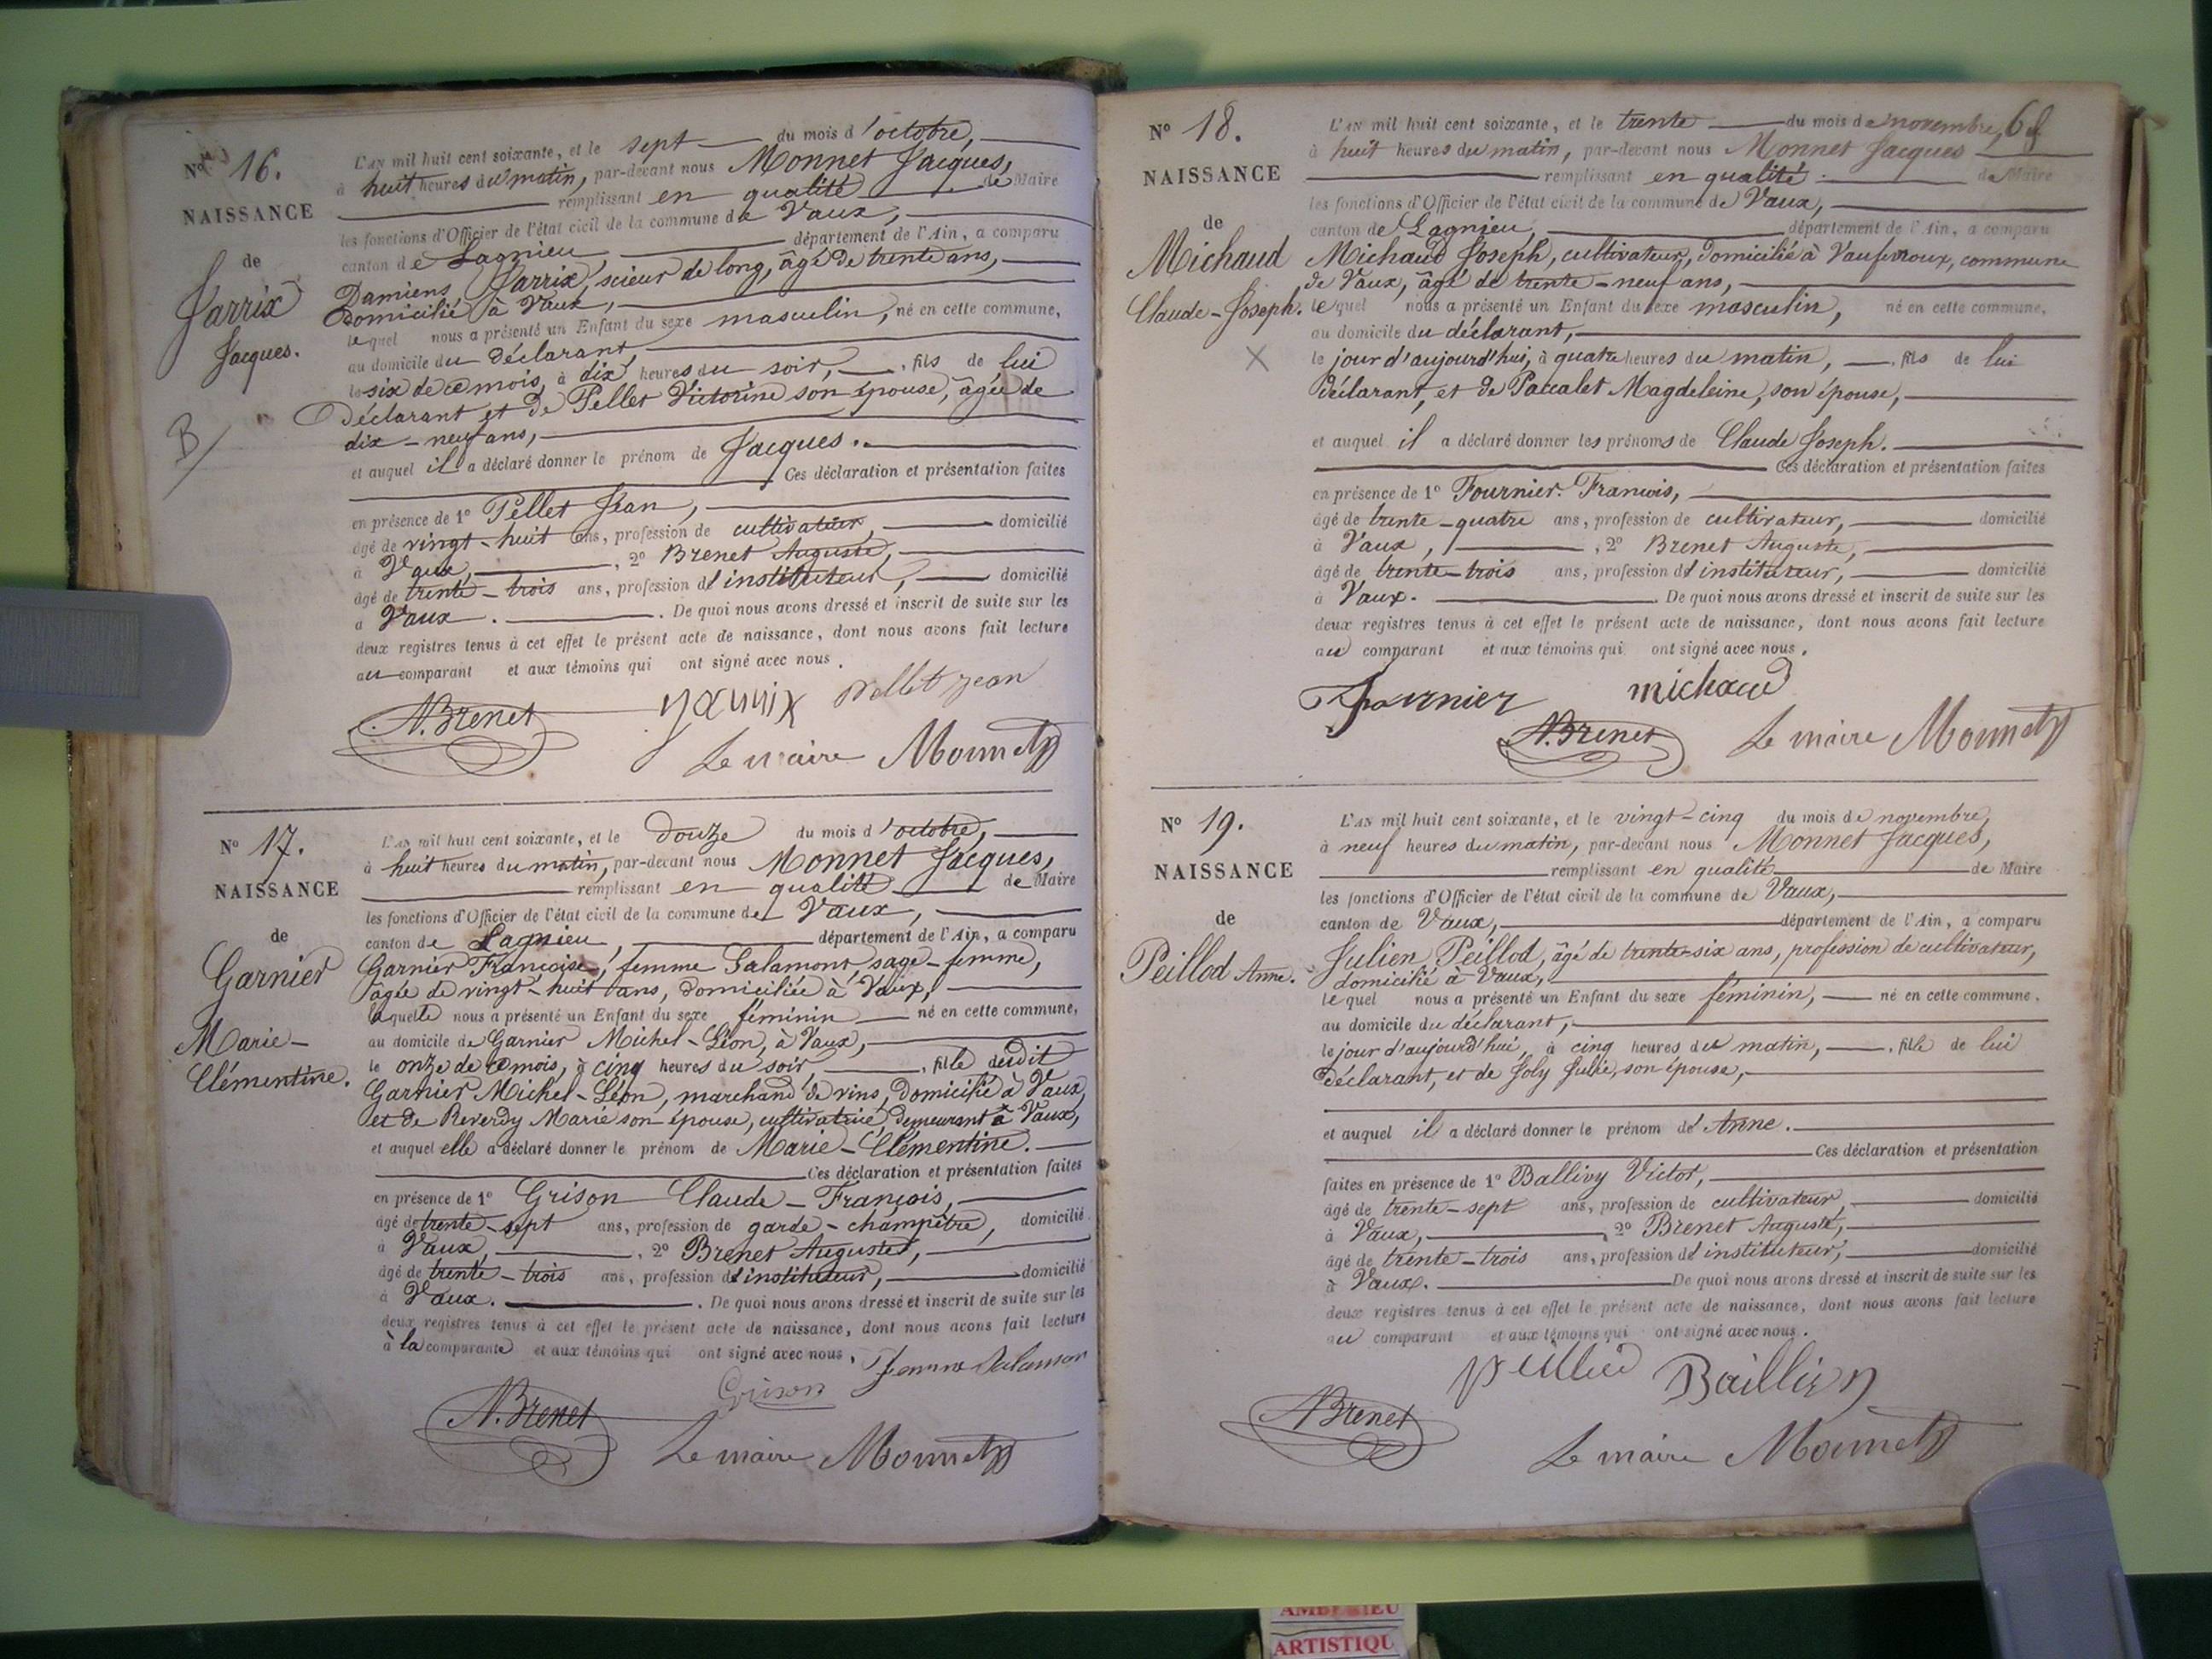 No 16.
NAISSANCE
de
Jarrix
Jacques.
B/
L'AN mil huit cent soixante, et le sept du mois d'octobre,
à huit heures du matin, par-devant nous Monnet Jacques,
remplissant en qualité de Maire
les fonctions d'Officier de l'état civil de la commune de Vaux,
canton de Lagnieu, département de l'Ain, a comparu
Damiens Jarrix, scieur de long, âgé de trente ans,
domicilié à Vaux,
lequel nous a présenté un Enfant du sexe masculin, né en cette commune,
au domicile du déclarant,
le six de ce mois, à dix heures du soir, fils de lui
Déclarant et de Pellet Victorine son épouse, âgée de
dix-neuf ans,
et auquel il a déclaré donner le prénom de Jacques.
Ces déclaration et présentation faites
en présence de 1o Pellet Jean,
âgé de vingt-huit ans, profession de cultivateur, domicilié
à Vaux, 2o Brenet Auguste,
âgé de trente-trois ans, profession d'instituteur, domicilié
à Vaux. De quoi nous avons dressé et inscrit de suite sur les
deux registres tenus à cet effet le présent acte de naissance, dont nous avons fait lecture
au comparant et aux témoins qui ont signé avec nous.
A. Brenet Pellet Jean
Le maire Monnet
No 17.
NAISSANCE
de
Garnier
Marie-
Clémentine.
L'AN mil huit cent soixante, et le douze du mois d'octobre,
à huit heures du matin, par-devant nous Monnet Jacques,
remplissant en qualité de Maire
les fonctions d'Officier de l'état civil de la commune de Vaux,
canton de Lagnieu, département de l'Ain, a comparu
Garnier Françoise, femme Salamont, sage-femme,
âgée de vingt-huit ans, domiciliée à Vaux,
laquelle nous a présenté un Enfant du sexe féminin né en cette commune,
au domicile de Garnier Michel-Léon, à Vaux,
le onze de ce mois, à cinq heures du soir, fille dudit
Garnier Michel-Léon, marchand de vins, domicilié à Vaux,
et de Reverdy Marie son épouse, cultivatrice, demeurant à Vaux,
et auquel elle a déclaré donner le prénom de Marie-Clémentine.
Ces déclaration et présentation faites
en présence de 1o Grison Claude-François,
âgé de trente-sept ans, profession de garde-champêtre, domicilié
à Vaux, 2o Brenet Auguste,
âgé de trente-trois ans, profession d'instituteur, domicilié
à Vaux. De quoi nous avons dressé et inscrit de suite sur les
deux registres tenus à cet effet le présent acte de naissance, dont nous avons fait lecture
à la comparante et aux témoins qui ont signé avec nous.
femme Salamon
Grison
A. Brenet
Le maire Monnet
68
No 18.
NAISSANCE
de
Michaud
Claude-Joseph.
X
L'AN mil huit cent soixante, et le trente du mois de novembre,
à huit heures du matin, par-devant nous Monnet Jacques
remplissant en qualité de Maire
les fonctions d'Officier de l'état civil de la commune de Vaux,
canton de Lagnieu, département de l'Ain, a comparu
Michaud Joseph, cultivateur, domicilié à Vaufevroux, commune
de Vaux, âgé de trente-neuf ans,
lequel nous a présenté un Enfant du sexe masculin, né en cette commune,
au domicile du déclarant,
le jour d'aujourd'hui, à quatre heures du matin, fils de lui
déclarant, et de Pascalet Magdeleine, son épouse,
et auquel il a déclaré donner les prénoms de Claude Joseph.
Ces déclaration et présentation faites
en présence de 1o Fournier François,
âgé de trente-quatre ans, profession de cultivateur, domicilié
à Vaux, 2o Brenet Auguste,
âgé de trente-trois ans, profession d'instituteur, domicilié
à Vaux. De quoi nous avons dressé et inscrit de suite sur les
deux registres tenus à cet effet le présent acte de naissance, dont nous avons fait lecture
au comparant et aux témoins qui ont signé avec nous.
Fournier michaud
A. Brenet Le maire Monnet
No 19.
NAISSANCE
de
Peillod Anne.
L'AN mil huit cent soixante, et le vingt-cinq du mois de novembre,
à neuf heures du matin, par-devant nous Monnet Jacques,
remplissant en qualité de Maire
les fonctions d'Officier de l'état civil de la commune de Vaux,
canton de Vaux, département de l'Ain, a comparu
Julien Peillod, âgé de trente-six ans, profession de cultivateur,
domicilié à Vaux,
lequel nous a présenté un Enfant du sexe féminin, né en cette commune,
au domicile du déclarant,
le jour d'aujourd'hui, à cinq heures du matin, fille de lui
déclarant, et de Joly Julie, son épouse,
et auquel il a déclaré donner le prénom de Anne.
Ces déclaration et présentation
faites en présence de 1o Ballivy Victor,
âgé de trente-sept ans, profession de cultivateur, domicilié
à Vaux, 2o Brenet Auguste,
âgé de trente-trois ans, profession d'instituteur, domicilié
à Vaux. De quoi nous avons dressé et inscrit de suite sur les
deux registres tenus à cet effet le présent acte de naissance, dont nous avons fait lecture
au comparant et aux témoins qui ont signé avec nous.
A. Brenet
Le maire Monnet
AMBERIEU
ARTISTIQU